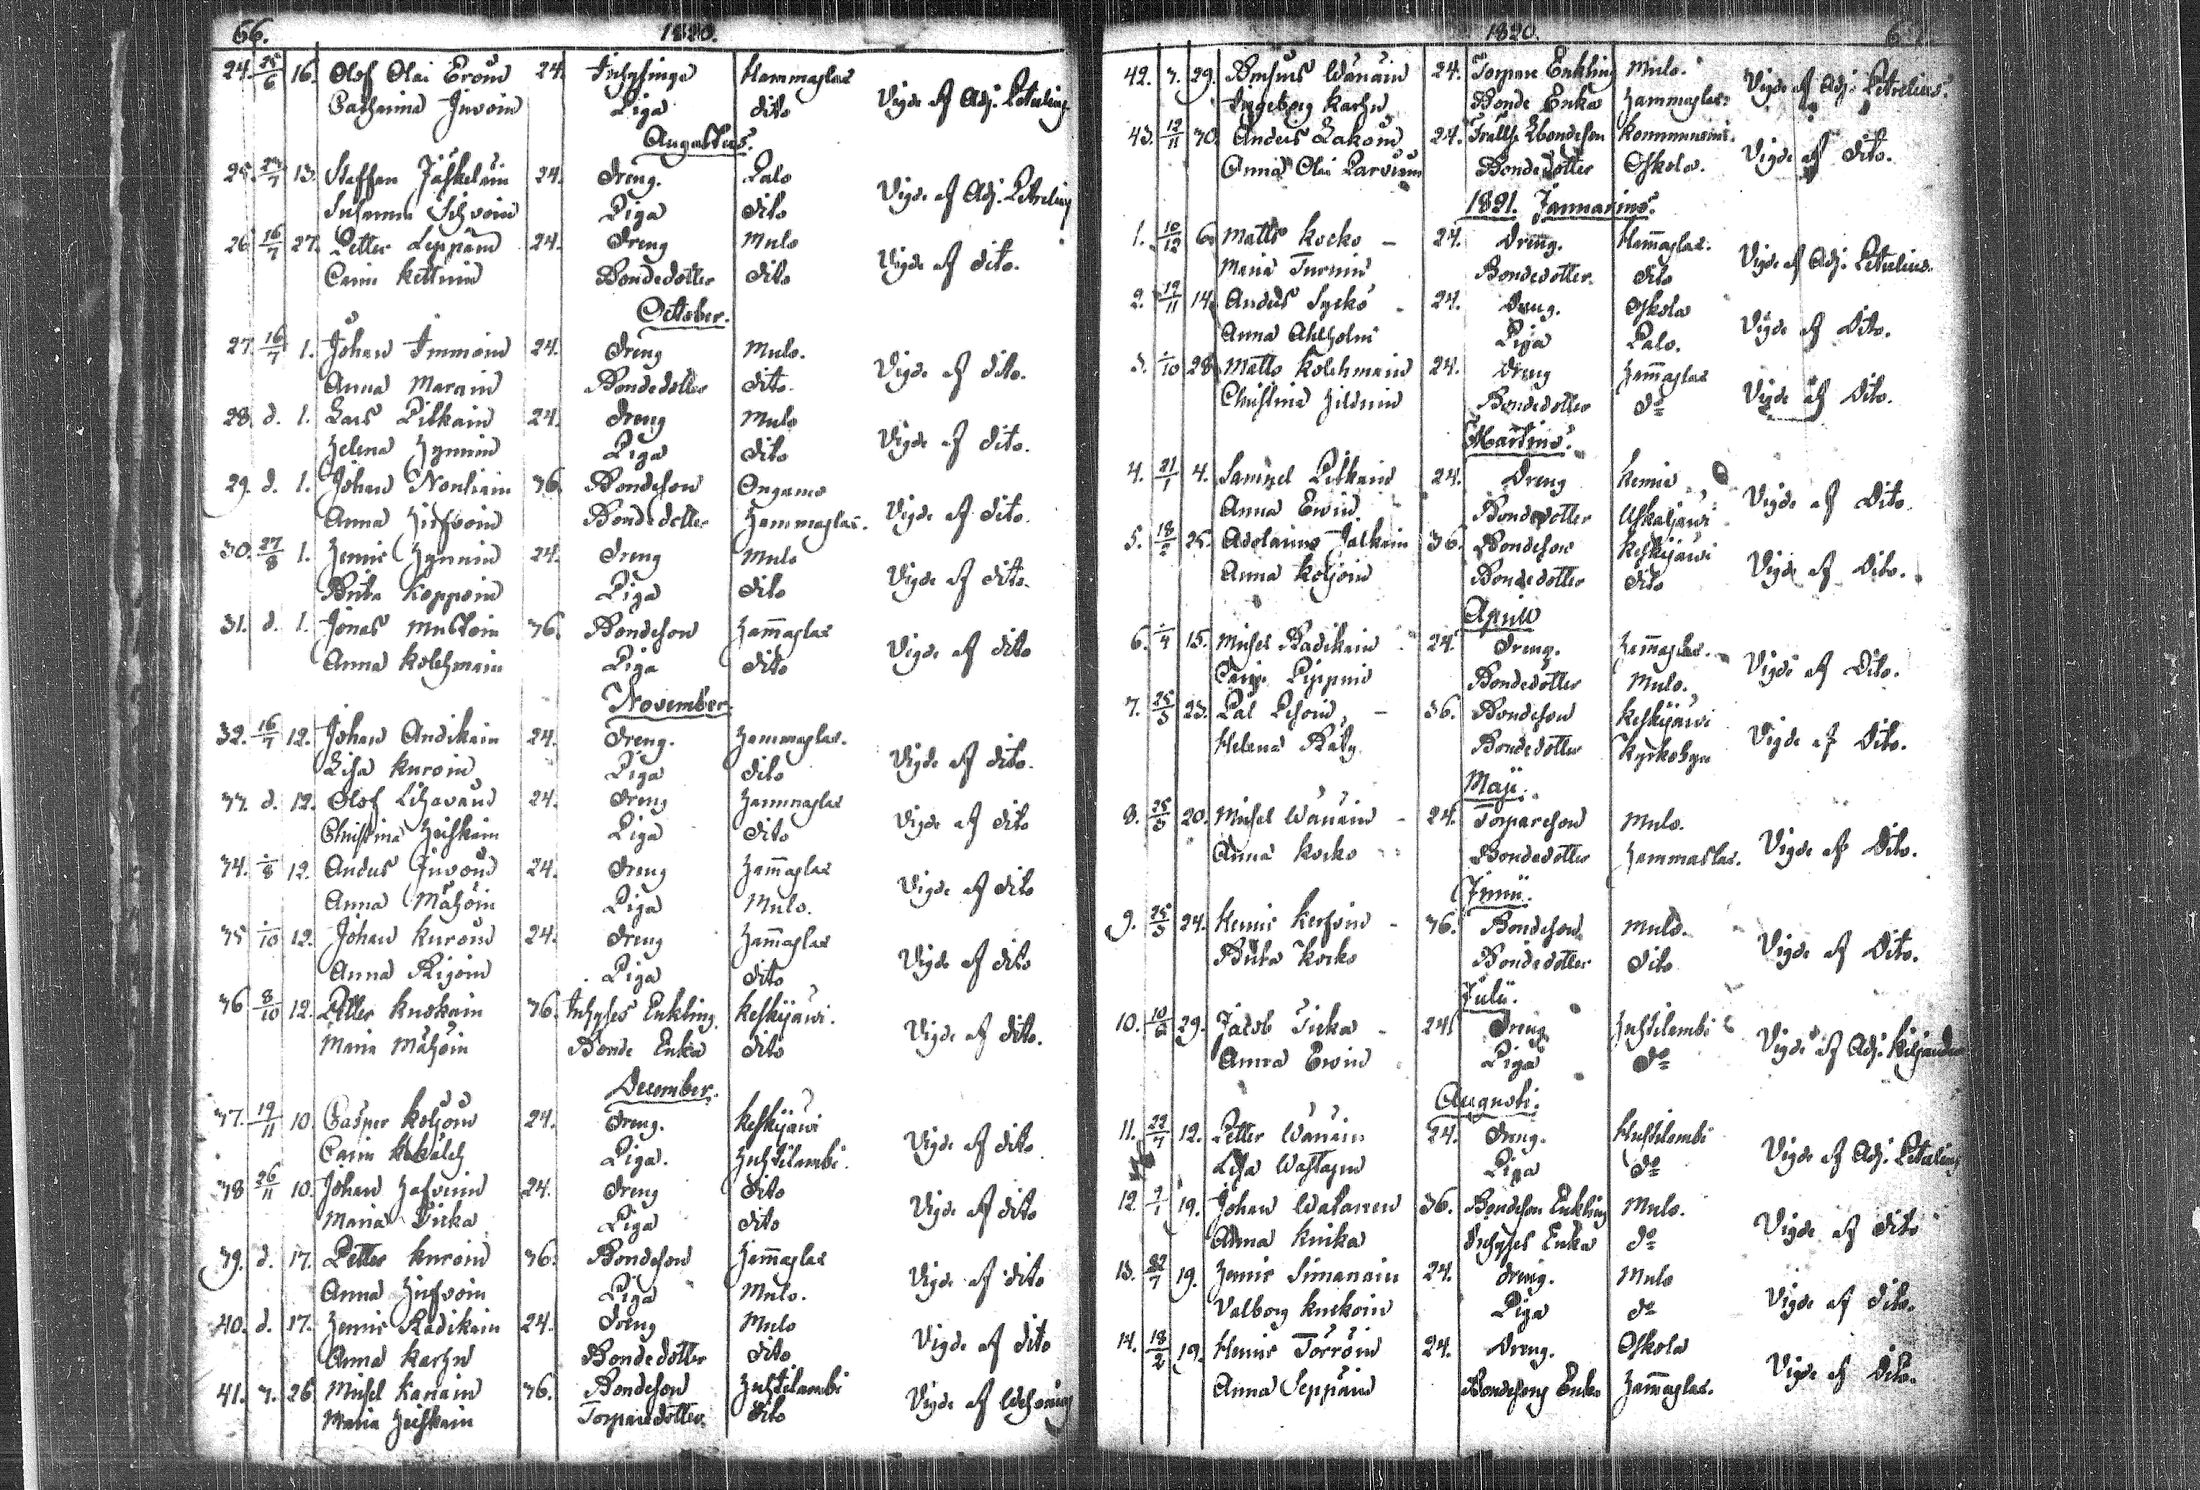 66. 1820.
24. 25/6 16. Olof Olai Eroin 24. Inhysinge Hammaslax
Catharina Juvoin Piga dito Vigde af Adj. Petrelius
Augustus.
25. 27/7 13. Staffan Jäskeläin 24. Dreng. Palo
Susanna Sihvoin Piga dito Vigde af Adj. Petrelius
26. 16/7 27. Petter Leppäin 24. Dreng Mulo
Carin Kettuin Bondedotter dito Vigde af dito.
October.
27. 16/7 1. Johan Immoin 24. Dreng Mulo.
Anna Marain Bondedotter dito. Vigde af dito.
28. d. 1. Lars Pitkäin 24. Dreng Mulo
Helena Hynnin Piga dito Vigde af dito.
29. d. 1. Johan Nonliain 36. Bondeson
Anna Hirfvoin Bondedotter Hammaslax. Vigde af dito.
30. 27/8 1. Henric Hynnin 24. Dreng Mulo
Brita Koppoin Piga dito Vigde af dito.
31. d. 1. Jonas Mustoin 36. Bondeson Hammaslax
Anna Kolehmain Piga dito Vigde af dito
November.
32. 16/7 12. Johan Andikain 24. Dreng. Hammaslax.
Lisa Kuroin Piga dito Vigde af dito.
33. d. 12. Olof Lihavain 24. Dreng Hammaslax
Christina Heiskain Piga dito Vigde af dito
34. ÷/8 12. Anders Juvoin 24. Dreng Hammaslax
Anna Mähöin Piga Mulo. Vigde af dito
35 ÷/10 12. Johan Kuroin 24. Dreng Hammaslax
Anna Rigoin Piga dito Vigde af dito
36 8/10 12. Petter Kuokain 36. Inhyses Enkling. Keskijärvi.
Maria Mähöin Bonde Enka dito Vigde af dito.
December.
37. 19/11 10. Casper Koljoin 24. Dreng. Keskijärvi
Carin Piga. Huhtilambi. Vigde af dito
38 26/11 10. Johan Hafvinin 24. Dreng dito
Maria Ticka Piga dito Vigde af dito
39. d. 17. Petter Kuroin 36. Bondeson Hammaslax
Anna Hirfvoin Piga Mulo. Vigde af dito
40. d. 17. Henric Radikain 24. Dreng Mulo
Anna Karhu Bondedotter dito Vigde af dito
41. 3. 26 Michel Kanain 36. Bondeson Huhtilambi
Maria Heiskain Torparedotter. dito Vigde af
1820.
42. 3. 29. Rasmus Wänäin 24. Torpare Enkling Mulo.
Ingeborg Karhu Bonde Enka Hammaslax Vigde af Adj. Petrelius.
43. 12/11 30. Anders Lakoin 24.
Anna Olai Parviain Bondedotter Oskola. Vigde af dito.
1821. Januarius.
1. 10/12 6. Matts Kocko – 24. Dreng. Hammaslax.
Maria Turuin Bondedotter. dito Vigde af Adj. Petrelius.
2. 12/11 14. Anders Sycko – 24. Dreng. Oskola
Anna Ahlholm Piga Palo. Vigde af Dito.
3. ÷/10 28. Matts Kolehmain 24. Dreng Hammaslax
Christina Bondedotter do Vigde af Dito.
Martius.
4. 21/1 4. Samuel Pitkäin 24. Dreng Kemie
Anna Ervin Bondedotter Uskaljärvi Vigde af Dito.
5. 18/2 25. Adolarius Jalkain 36. Bondeson Keskijärvi
Anna Koljoin Bondedotter dito Vigde af Dito.
Aprill
6. ÷/4 15. Michel Radikain 24. Dreng. Hammaslax.
Carin Pippuri Bondedotter Mulo. Vigde af Dito.
7. 25/3 23. Pål Pesoin – 36. Bondeson Keskijärvi
Helena Räty. Bondedotter Kyrkobyn Vigde af Dito.
Maji.
8. 25/3 20. Michel Wänäin – 24. Torpareson Mulo.
Anna Kocko Bondedotter Hammaslax. Vigde af Dito.
Junii.
9. 25/3 24. Henric Kerfvin – 36. Bondeson Mulo.
Brita Kocko Bondedotter dito Vigde af Dito.
Julii.
10. 10/6 29. Jacob Ticka – 24. Dreng Huhtilambi
Anna Ervin Piga do Vigde af Adj. Kiljander
Augusti.
11. 22/7 12. Petter Wänäin 24. Dreng. Huhtilambi
Lisa Wastapu Piga do Vigde af Adj. Petrelius
12. 1/7 19. Johan Watanen 36. Bondeson Enkling Mulo.
Anna Kinka Inhyses Enka do Vigde af dito
13. 22/7 19. Henric Simanain 24. Dreng. Mulo
Valborg Kuckoin Piga do Vigde af Dito.
14. 18/2 19. Henric Törröin 24. Dreng. Oskola
Anna Seppäin Bondesons Enka Hammaslax. Vigde af Dito.